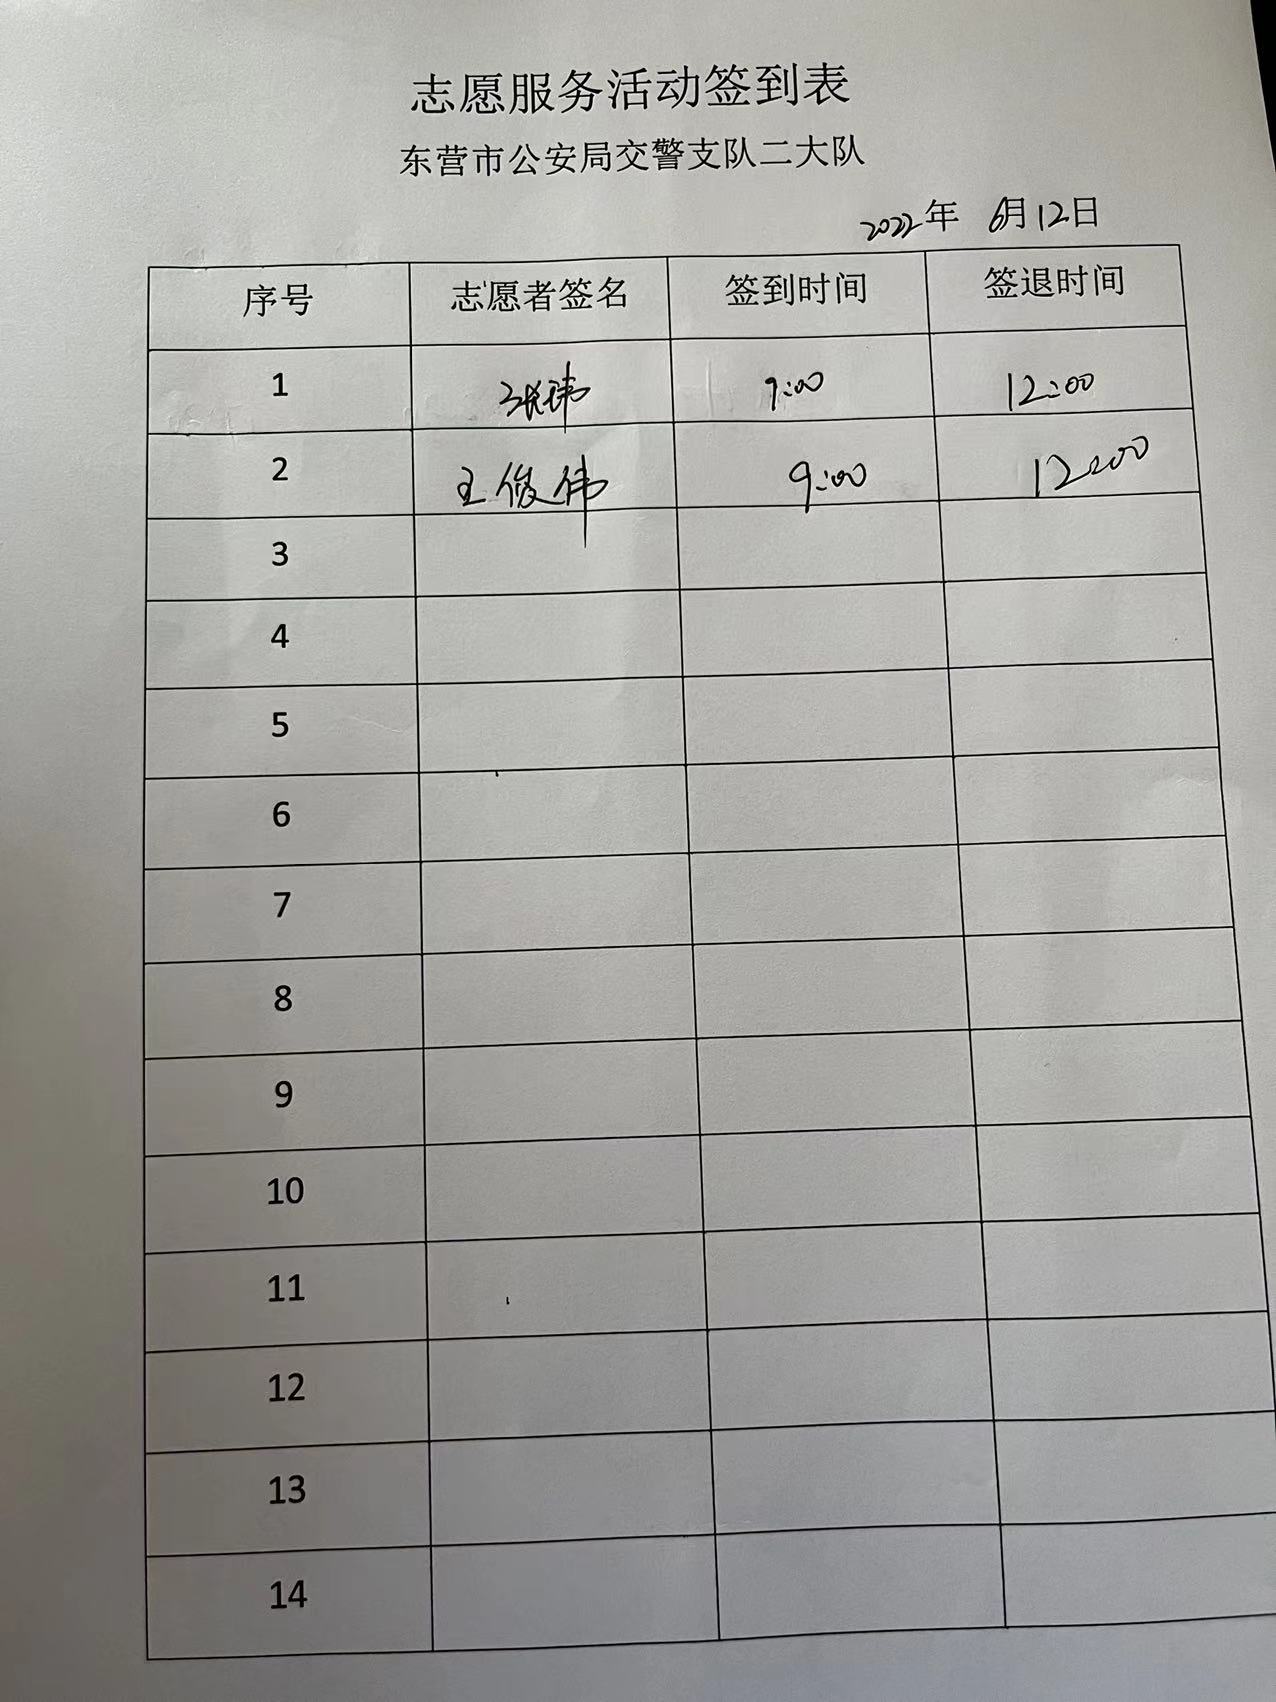 志愿服务活动签到表
东营市公安局交警支队二大队
2022年 6月12日
序号 志愿者签名 签到时间 签退时间
1 张玮 9:00 12:00
2 王俊伟 9:00 12:00
3
4
5
6
7
8
9
10
11
12
13
14